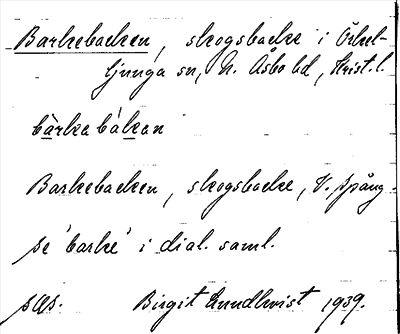 Barkebacken, skogsbacke i Örkel-
ljunga sn, N. Åsbo hd, Krist. l.
bàrkebákan
Barkebacken, skogsbacke, V. Spång.
se 'barke' i dial. saml.
Birgit Lundkvist 1939.